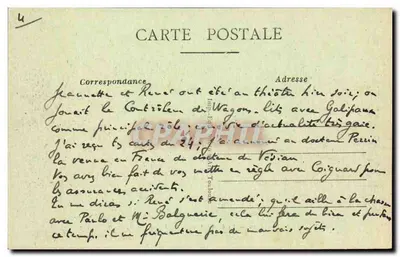 4
CARTE POSTALE
Correspondance
Adresse
Jeannette et René ont été au théâtre hier soir; on
jouait le Contrôleur de Wagons-lits avec Galipaux
comme principal rôle d'actualité très gaie.
J'ai reçu les cartes du 24; j'ai annoncé au docteur Perrin
la venue en France du docteur du Vésian.
Vos avez bien fait de vos mettre en règle avec Coignard pour
les assurances accidents.
tu me diras si René s'est amendé; qu'il aille à la chasse
avec Paulo et Mr Balguerie, cela lui fera du bien et pendant
ce temps, il ne fréquentera pas de mauvais sujets.